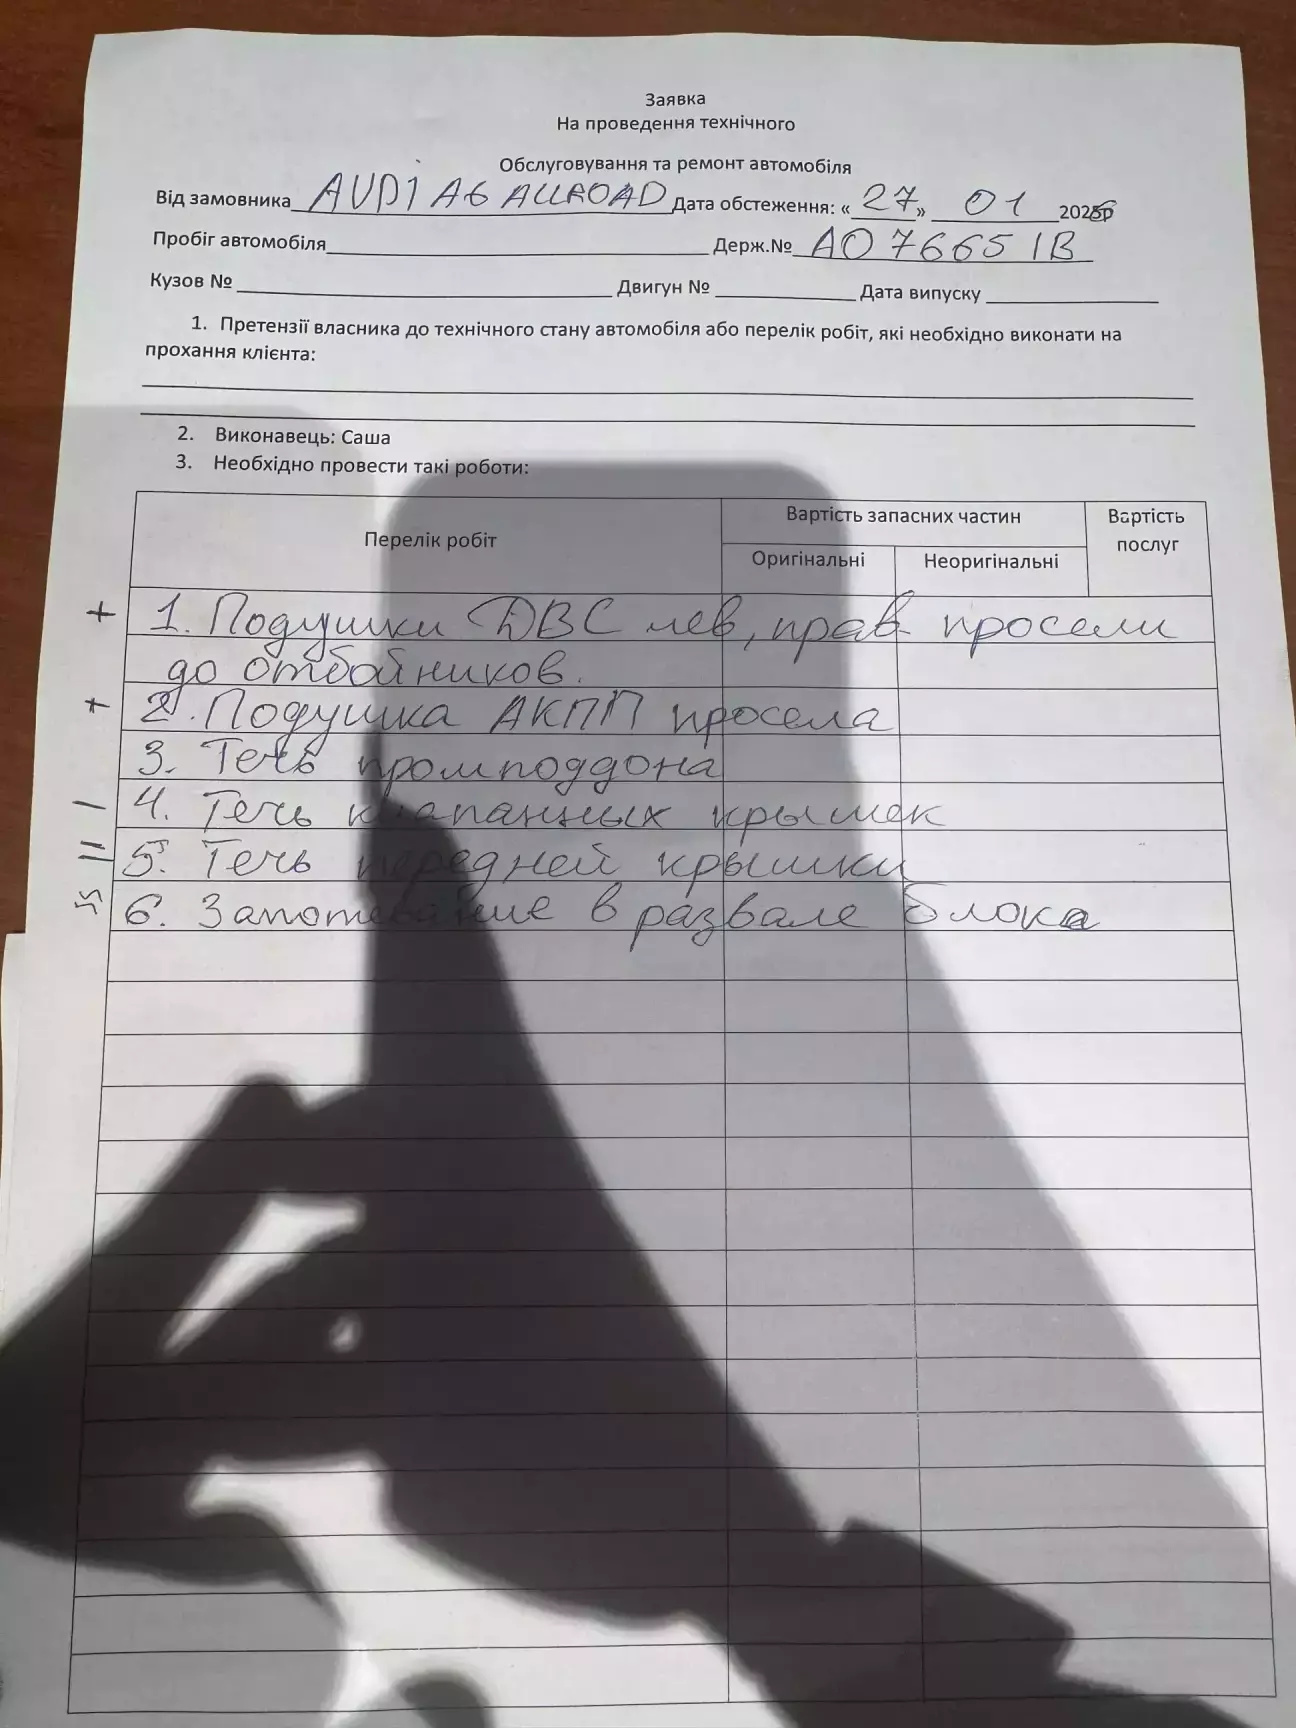 Заявка
На проведення технічного
Обслуговування та ремонт автомобіля
Від замовника AUDI A6 ALLROAD Дата обстеження: «27» 01 2026
Пробіг автомобіля Держ.№ AO 7665 IB
Кузов № Двигун № Дата випуску
1. Претензії власника до технічного стану автомобіля або перелік робіт, які необхідно виконати на
прохання клієнта:
2. Виконавець: Саша
3. Необхідно провести такі роботи:
Перелік робіт Вартість запасних частин Вартість послуг
Оригінальні Неоригінальні
+ 1. Подушки ДВС лев, прав просели
до отбойников.
+ 2. Подушка АКПП просела
3. Течь промподдона
4. Течь клапанных крышек
5. Течь передней крышки
6. Запотевание в развале блока